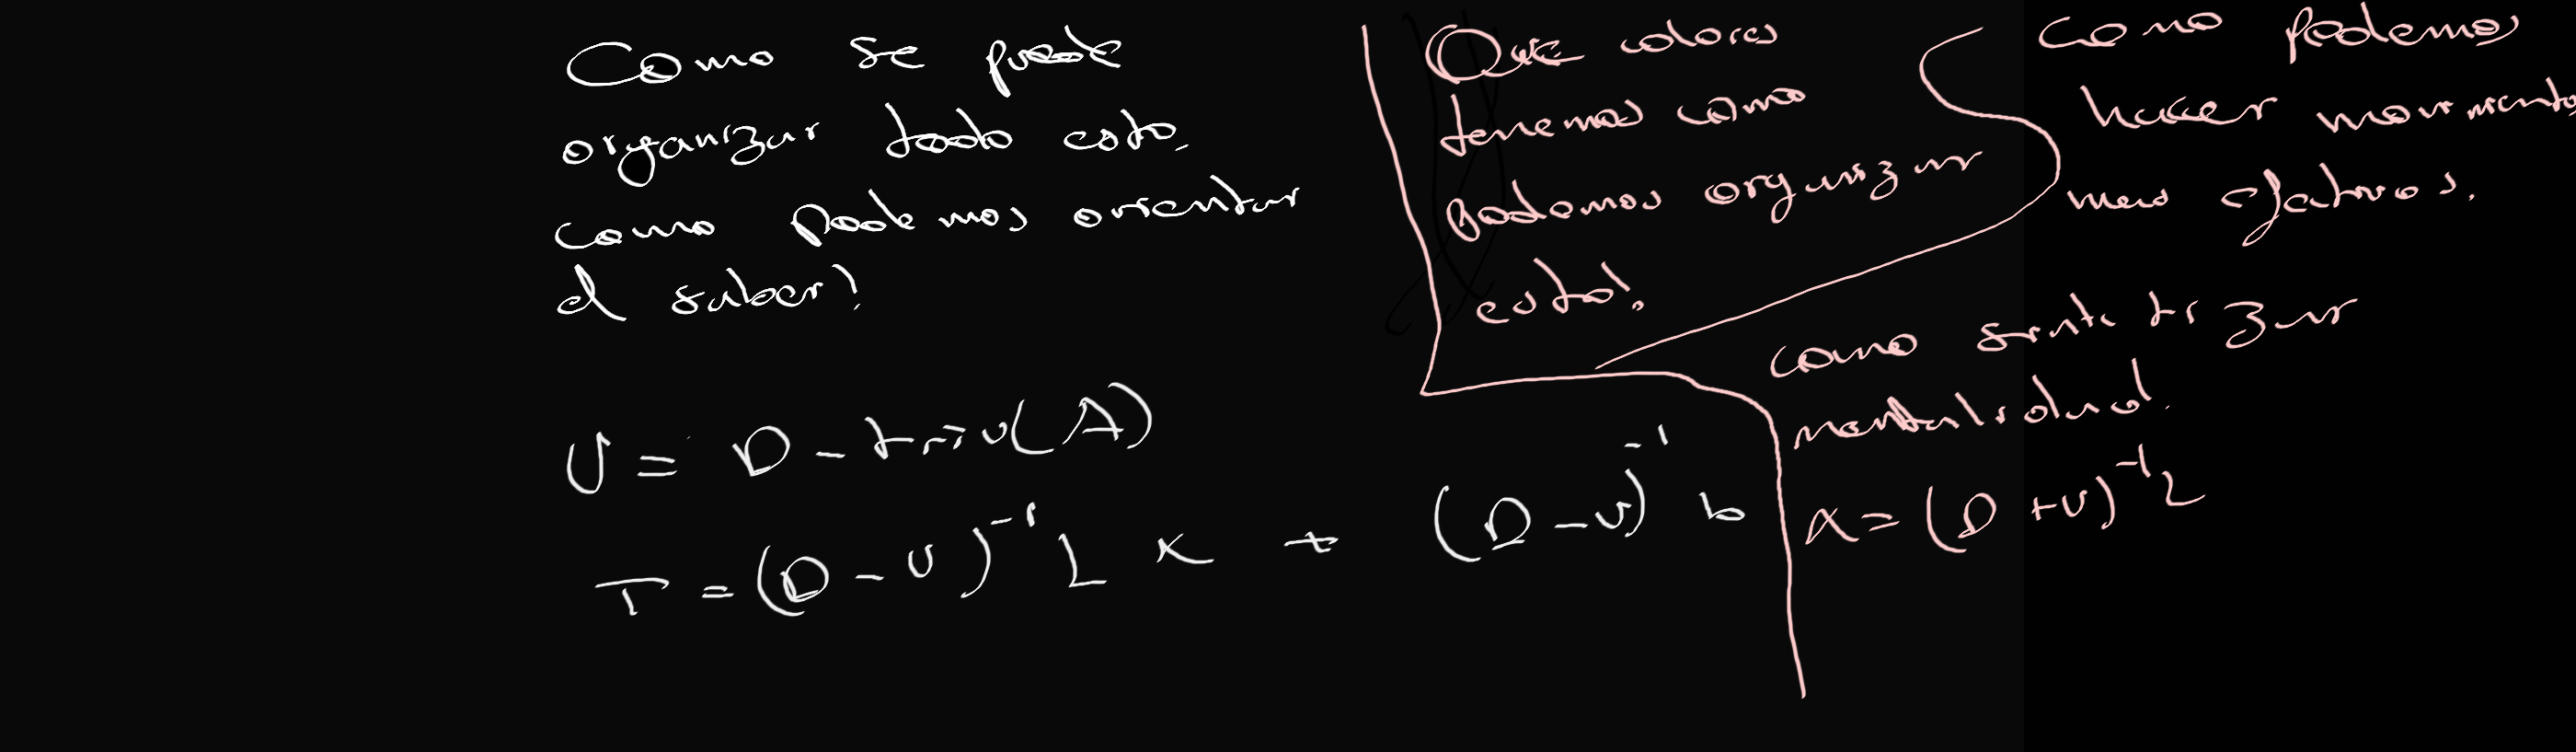 Como se puede
organizar todo esto,
como podemos orientar
el saber?
U = D - triu(A)
T = (D - U)⁻¹ L x + (D - U)⁻¹ b
Que colores
tenemos como
podemos organizar
esto?
Como podemos
hacer movimientos
mas efectivos.
como sintetizar
α = (D + U)⁻¹ L